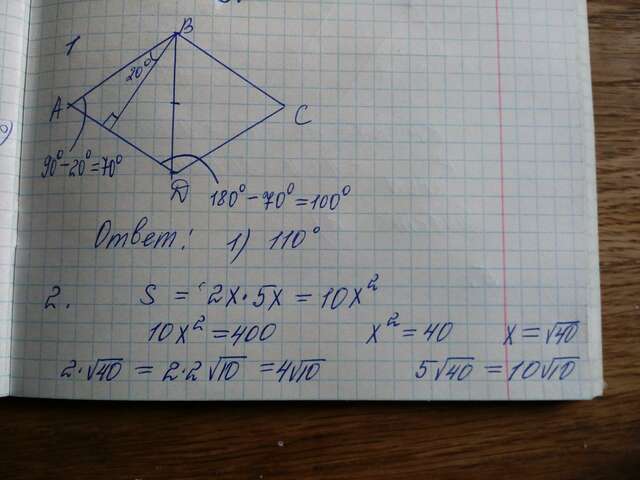 1
B
20°
A
C
90°-20°=70°
D
180°-70°=100°
Ответ: 1) 110°
2. S = 2x·5x = 10x²
10x² = 400 x² = 40 x = √40
2·√40 = 2·2√10 = 4√10 5√40 = 10√10